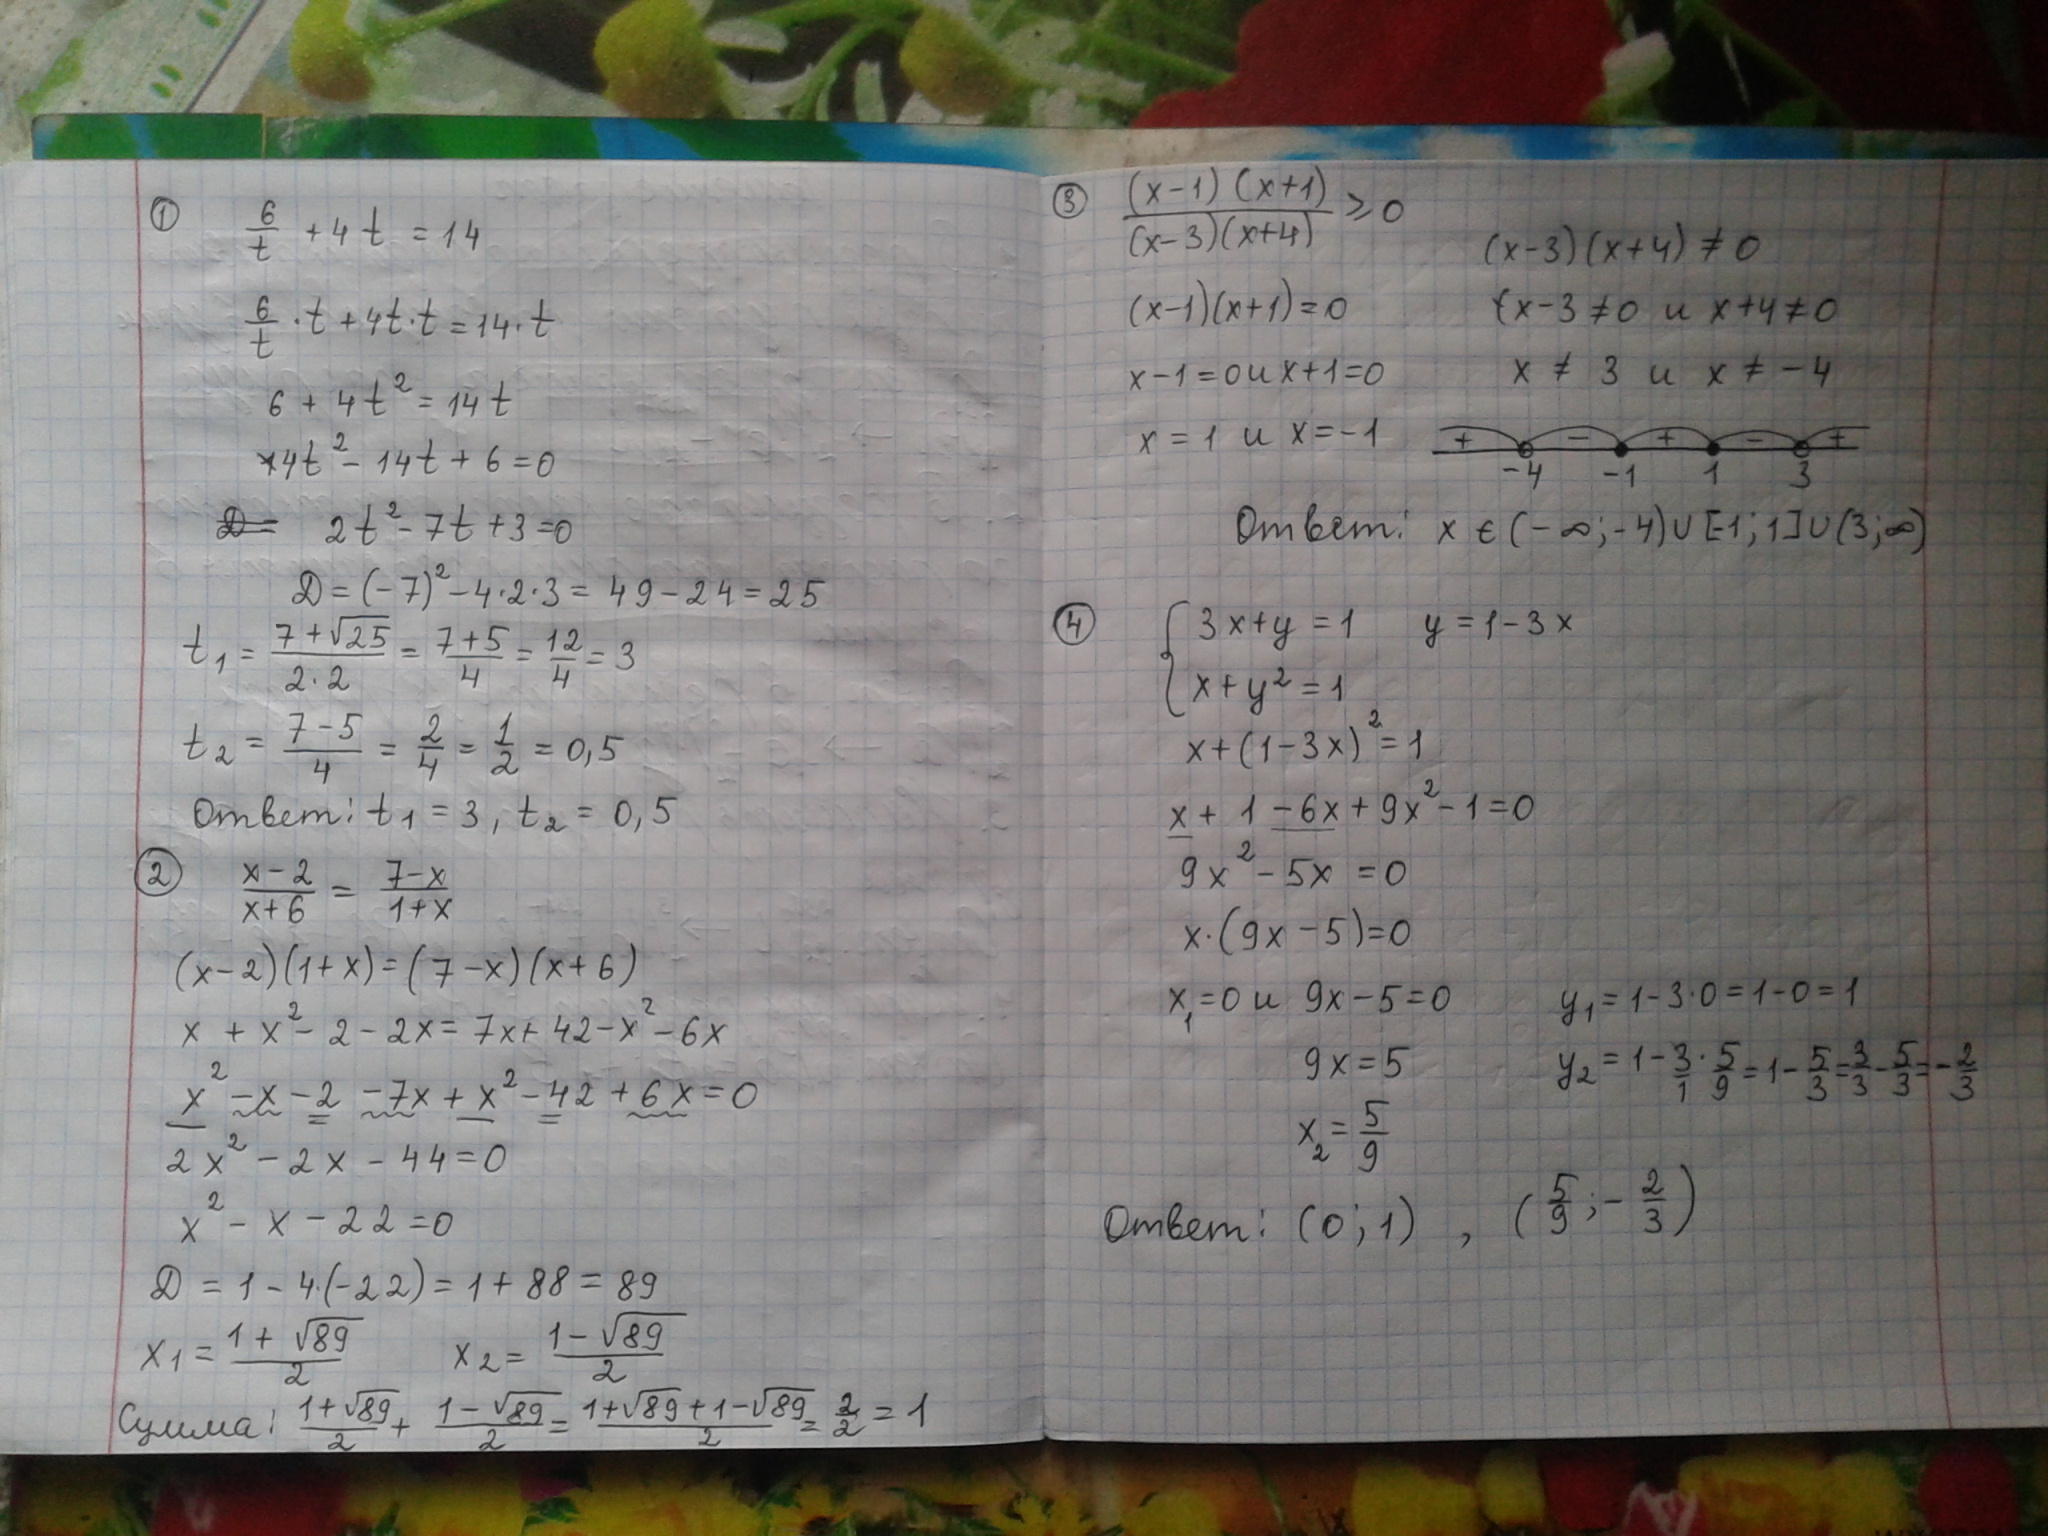 ① 6/t + 4t = 14
6/t · t + 4t · t = 14 · t
6 + 4t² = 14t
4t² - 14t + 6 = 0
2t² - 7t + 3 = 0
D = (-7)² - 4·2·3 = 49 - 24 = 25
t₁ = (7 + √25)/(2·2) = (7+5)/4 = 12/4 = 3
t₂ = (7-5)/4 = 2/4 = 1/2 = 0,5
Ответ: t₁ = 3, t₂ = 0,5
② (x-2)/(x+6) = (7-x)/(1+x)
(x-2)(1+x) = (7-x)(x+6)
x + x² - 2 - 2x = 7x + 42 - x² - 6x
x² - x - 2 - 7x + x² - 42 + 6x = 0
2x² - 2x - 44 = 0
x² - x - 22 = 0
D = 1 - 4·(-22) = 1 + 88 = 89
x₁ = (1 + √89)/2 x₂ = (1 - √89)/2
Сумма: (1+√89)/2 + (1-√89)/2 = (1+√89+1-√89)/2 = 2/2 = 1
③ (x-1)(x+1)/(x-3)(x+4) ⩾ 0
(x-3)(x+4) ≠ 0
(x-1)(x+1) = 0 {x-3 ≠ 0 и x+4 ≠ 0
x-1 = 0 и x+1 = 0 x ≠ 3 и x ≠ -4
x = 1 и x = -1
+ - + - +
-4 -1 1 3
Ответ: x ∈ (-∞; -4) ∪ [-1; 1] ∪ (3; ∞)
④ { 3x + y = 1 y = 1 - 3x
x + y² = 1
x + (1-3x)² = 1
x + 1 - 6x + 9x² - 1 = 0
9x² - 5x = 0
x·(9x - 5) = 0
x₁ = 0 и 9x - 5 = 0 y₁ = 1 - 3·0 = 1 - 0 = 1
9x = 5 y₂ = 1 - 3/1 · 5/9 = 1 - 5/3 = 3/3 - 5/3 = -2/3
x₂ = 5/9
Ответ: (0; 1) , (5/9; -2/3)